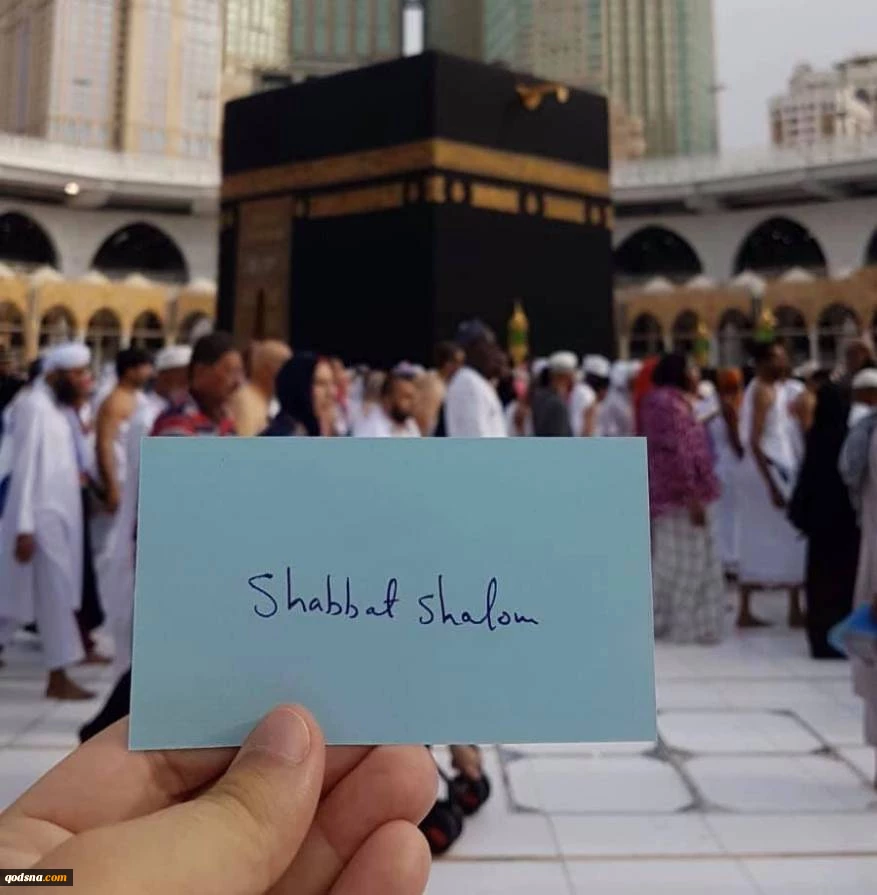 Shabbat Shalom
qodsna.com